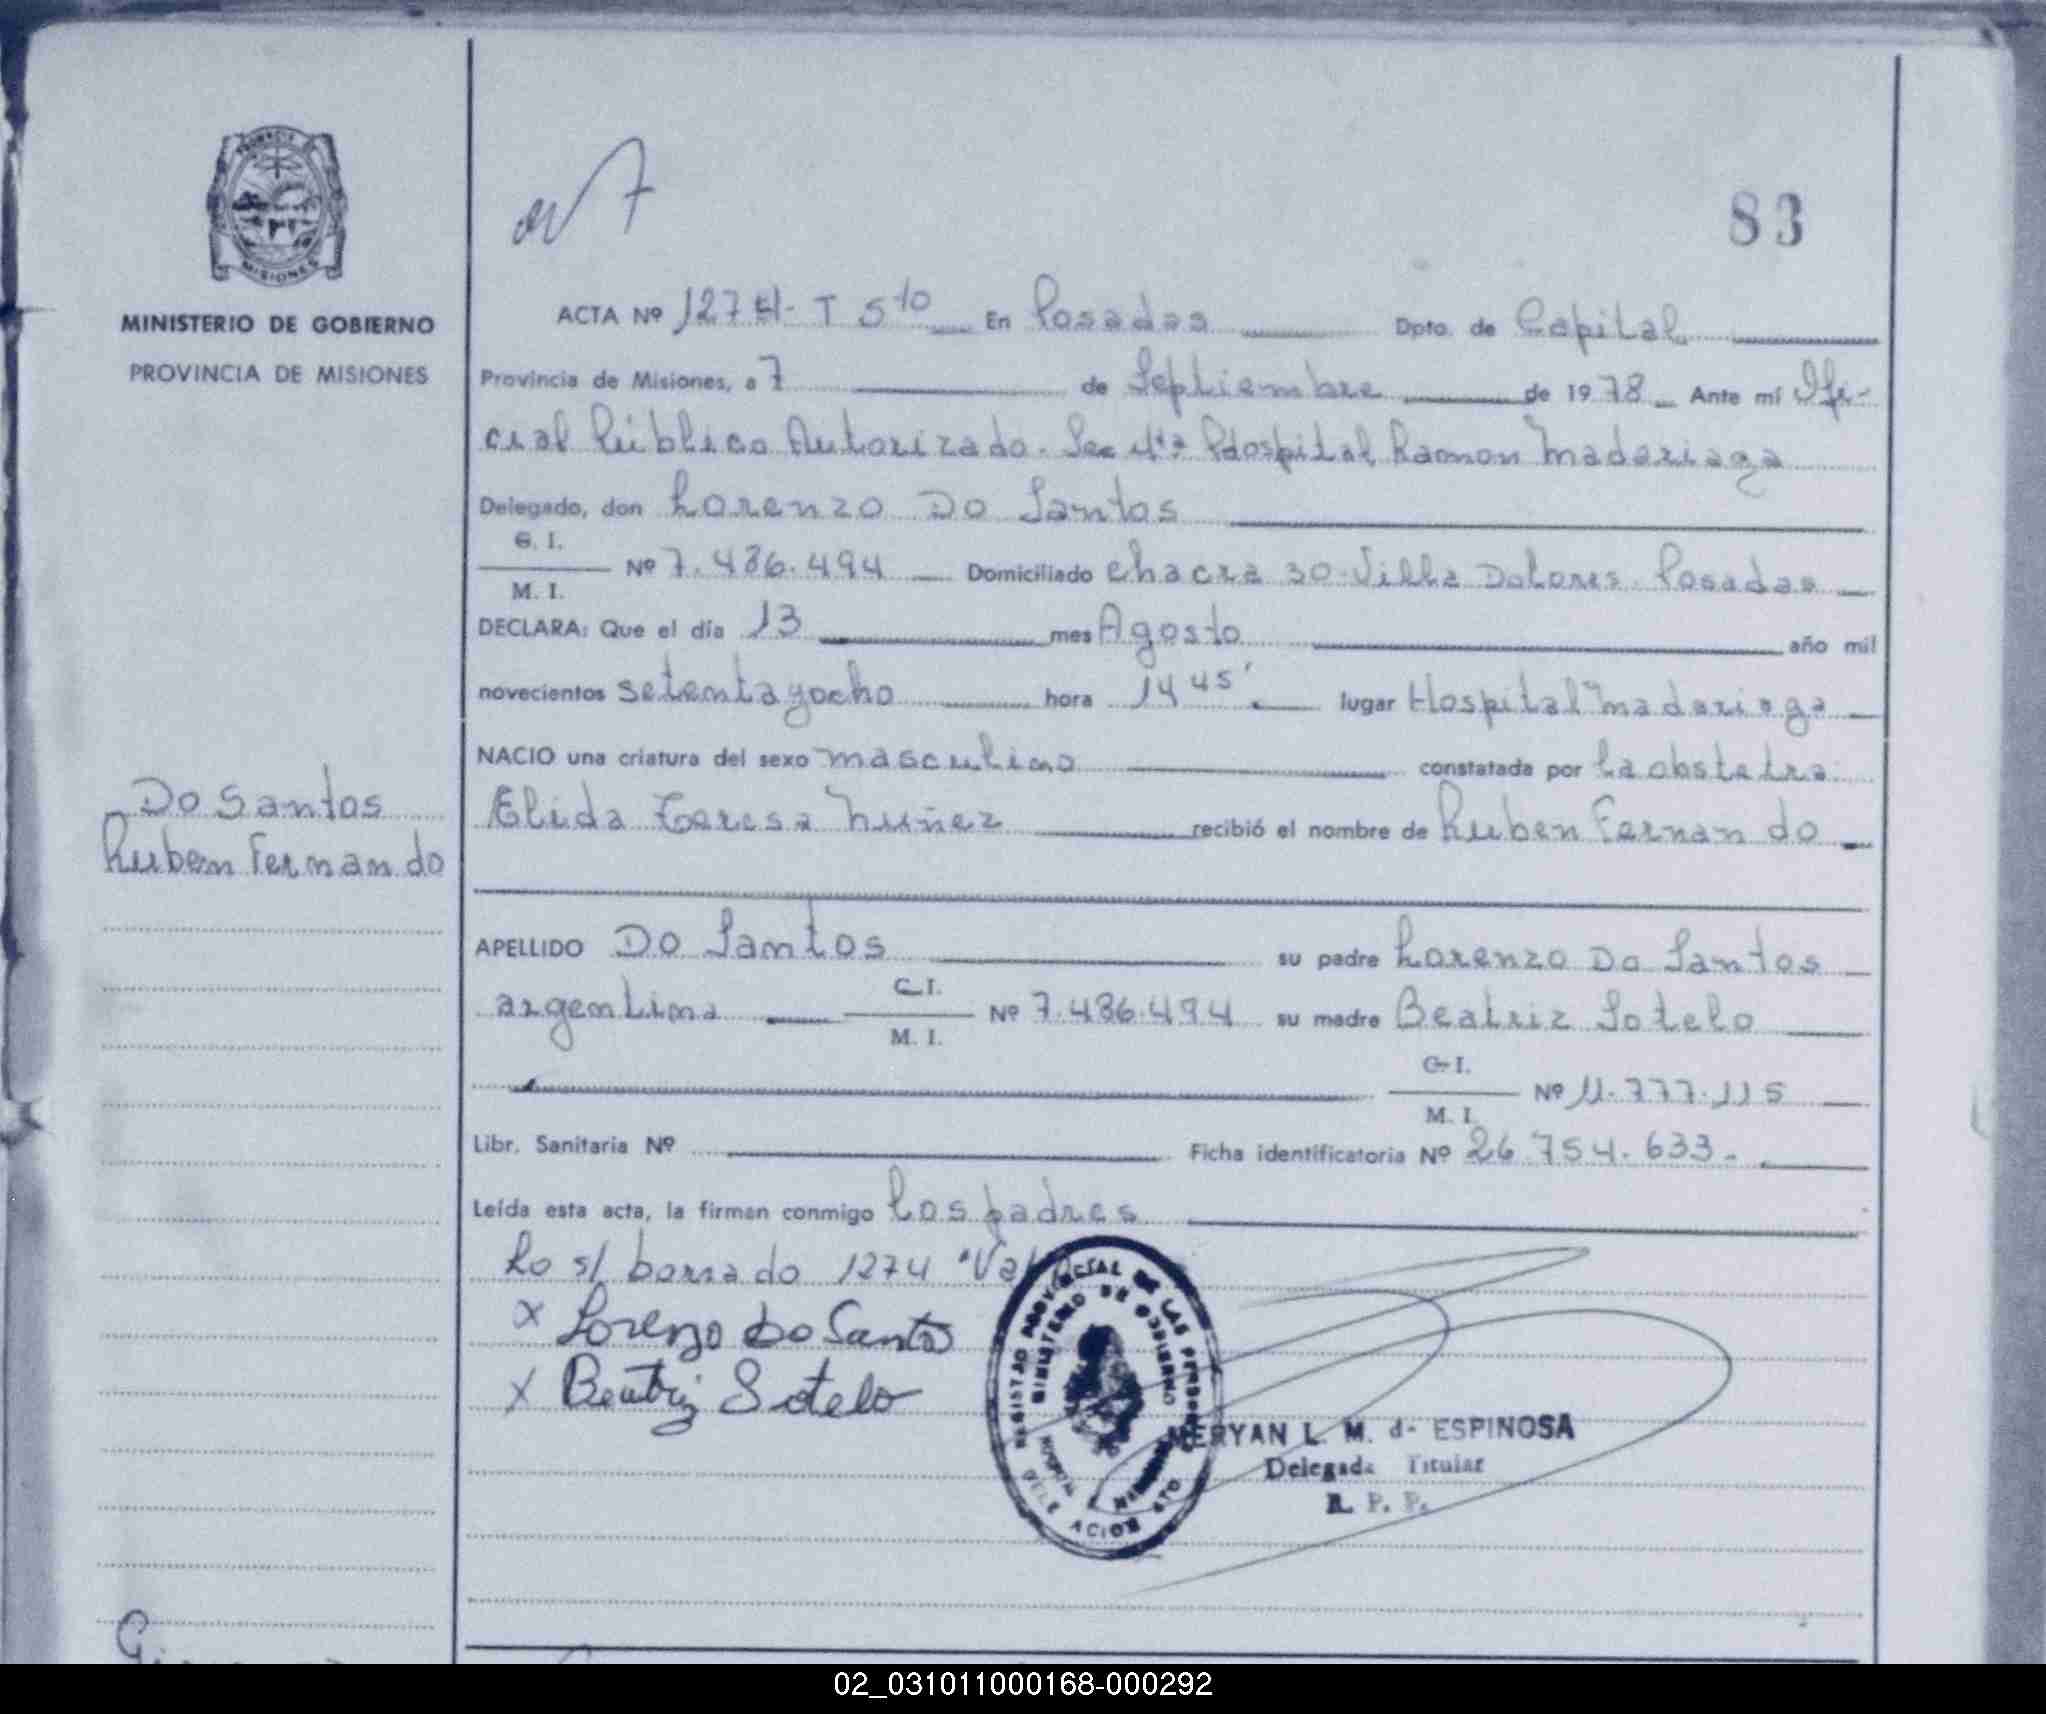 PROVINCIA
MISIONES
MINISTERIO DE GOBIERNO
PROVINCIA DE MISIONES
Do Santos
Ruben Fernando
83
ACTA Nº 1274- T 5to En Posadas Dpto. de Capital
Provincia de Misiones, a 7 de Septiembre de 1978 Ante mí Ofi-
cial Público Autorizado. Sec 4ta Hospital Ramon Madariaga
Delegado, don Lorenzo Do Santos
C. I.
M. I. Nº 7.486.494 Domiciliado Chacra 30-Villa Dolores. Posadas
DECLARA: Que el día 13 mes Agosto año mil
novecientos setentayocho hora 14 45' lugar Hospital Madariaga
NACIO una criatura del sexo masculino constatada por la obstetra
Elida Teresa Nuñez recibió el nombre de Ruben Fernando
APELLIDO Do Santos su padre Lorenzo Do Santos
argentino C.I. M. I. Nº 7.486.494 su madre Beatriz Sotelo
C. I.
M. I. Nº 11.777.115
Libr. Sanitaria Nº Ficha identificatoria Nº 26.754.633.
Leída esta acta, la firman conmigo los padres
Lo s/ borrado 1274 "Vale
x Lorenzo Do Santos
x Beatriz Sotelo
REGISTRO PROVINCIAL DE LAS PERSONAS
MINISTERIO DE GOBIERNO
HOSPITAL
DELEGACION
MERYAN L. M. de ESPINOSA
Delegada Titular
R. P. P.
02_031011000168-000292